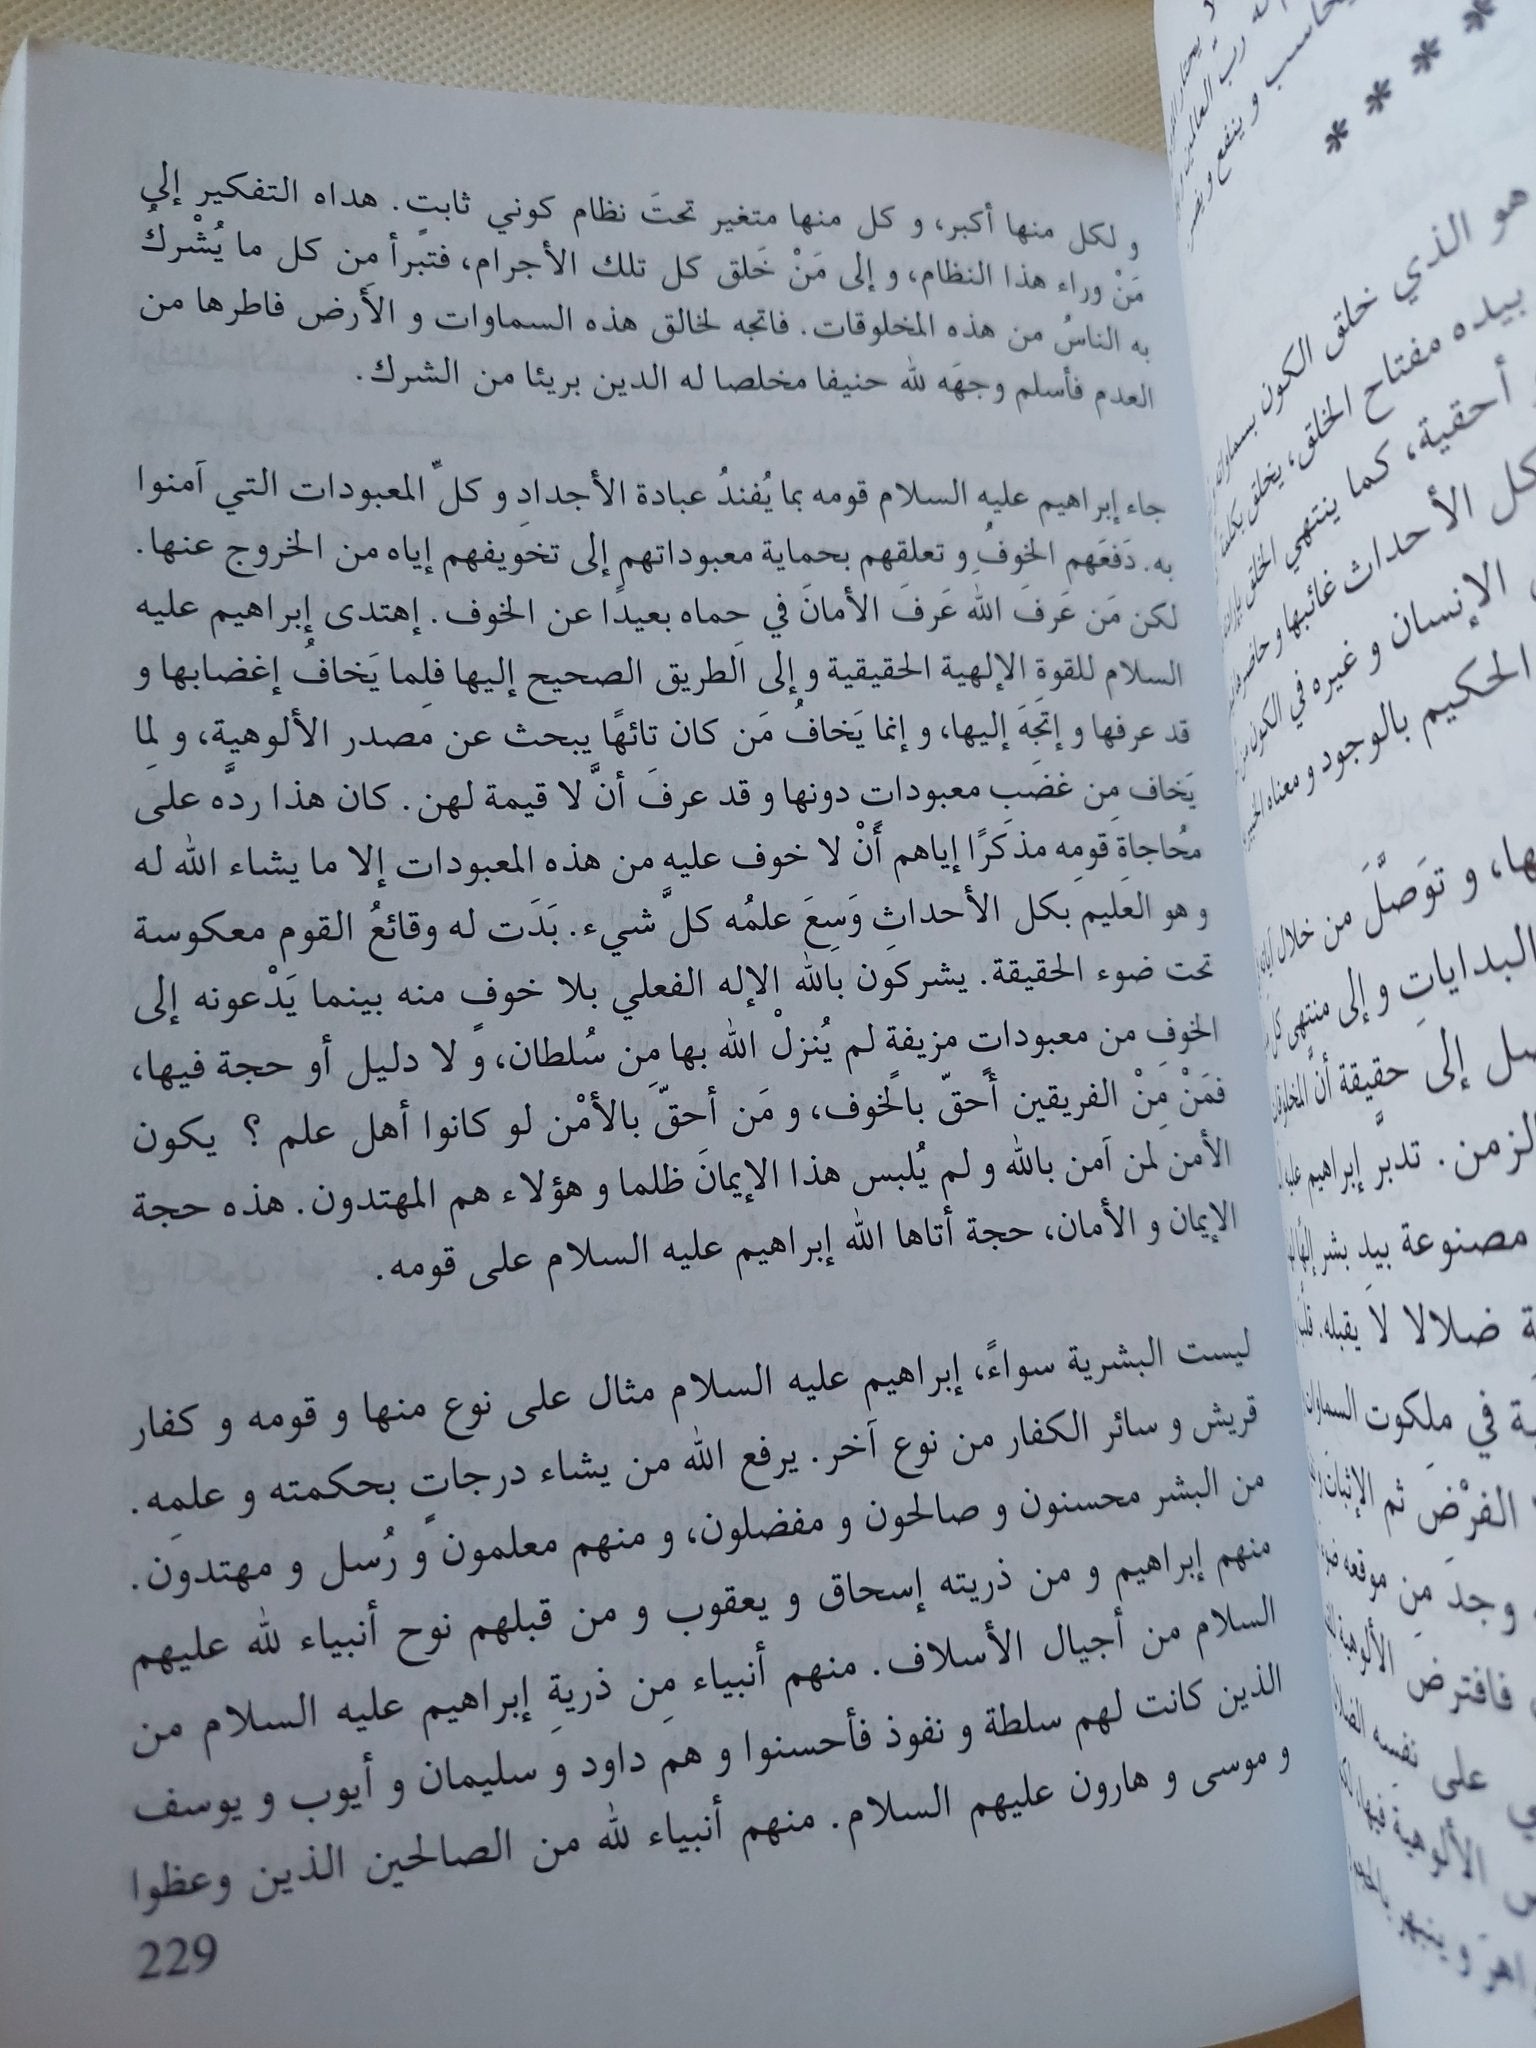 و لكل منها أكبر، و كل منها متغير تحتَ نظام كوني ثابتٍ. هداه التفكير إلى
مَنْ وراء هذا النظام، و إلى مَنْ خَلق كل تلك الأجرام، فتبرأ مِن كل ما يُشْركُ
به الناسُ من هذه المخلوقات. فاتجه لخالق هذه السماوات و الأرض فاطرها من
العدم فأسلم وجهَه لله حنيفا مخلصا له الدين بريئا من الشرك.
جاء إبراهيم عليه السلام قومه بما يُفندُ عبادة الأجدادِ و كلِّ المعبودات التي آمنوا
به. دَفعَهم الخوفُ و تعلقهم بحماية معبوداتهم إلى تخويفهم إياه من الخروج عنها.
لكن مَن عَرفَ اللهَ عَرفَ الأمانَ في حِماه بعيدًا عن الخوف. إهتدى إبراهيم عليه
السلام للقوة الإلهية الحقيقية و إلى الطريق الصحيح إليها فلِما يَخافُ إغضابها و
قد عرفها و إتجَهَ إليها، و إنما يَخافُ مَن كان تائهًا يبحث عن مَصدر الألوهية، و لِما
يَخاف مِن غضَبِ معبودات دونها و قد عرفَ أنَّ لا قيمة لهن. كان هذا ردَّه على
مُحاجاةَ قومِه مذكرًا إياهم أنْ لا خوف عليه من هذه المعبودات إلا ما يشاء الله له
و هو العَليم بكل الأحداثِ وَسِعَ علمُه كلَّ شيء. بَدَت له وقائعُ القوم معكوسة
تحت ضوء الحقيقة. يشركون بالله الإله الفعلي بلا خوفٍ منه بينما يَدْعونه إلى
الخوفِ من معبوداتٍ مزيفةٍ لم يُنزلْ اللهُ بها مِن سُلطان، و لا دليل أو حجة فيها،
فمَنْ مِنْ الفريقين أحقّ بالخوف، و مَن أحقّ بالأمْن لو كانوا أهل علم ؟ يكون
الأمنَ لمن آمن بالله و لم يُلبس هذا الإيمانَ ظلما و هؤلاء هم المهتدون. هذه حجة
الإيمان و الأمان، حجة أتاها الله إبراهيم عليه السلام على قومه.
ليست البشرية سواءً، إبراهيم عليه السلام مثال على نوع منها و قومه و كفار
قريش و سائر الكفار من نوع آخر. يرفع الله من يشاء درجاتٍ بحكمته و علمِه.
من البشر محسنون و صالحون و مفضلون، و منهم معلمون و رُسل و مهتدون.
منهم إبراهيم و من ذريته إسحاق و يعقوب و من قبلهم نوح أنبياء لله عليهم
السلام من أجيال الأسلاف. منهم أنبياء مِن ذريةِ إبراهيم عليه السلام من
الذين كانت لهم سلطة و نفوذ فأحسنوا و هم داود و سليمان و أيوب و يوسف
و موسى و هارون عليهم السلام. منهم أنبياء لله من الصالحين الذين وعظوا
229
* * * *
هو الذي خلق الكون
بيده مفتاح الخلق، يخلق
أحقية، كما ينتهي الخلق
كل الأحداث غائبها و
الإنسان و غيره في الكون
الحكيم بالوجود و معناه
و توَصلَّ من خلال
البداياتِ و إلى منتهى
إلى حقيقة أنَّ
الزمن. تدبرَّ إبراهيم
مصنوعة بيدِ بشر
ضلالا لا يقبله.
في ملكوت
الفرْضَ ثم
وجدَ مِن موقعه
فافترض
على نفسه
الألوهية فيها،